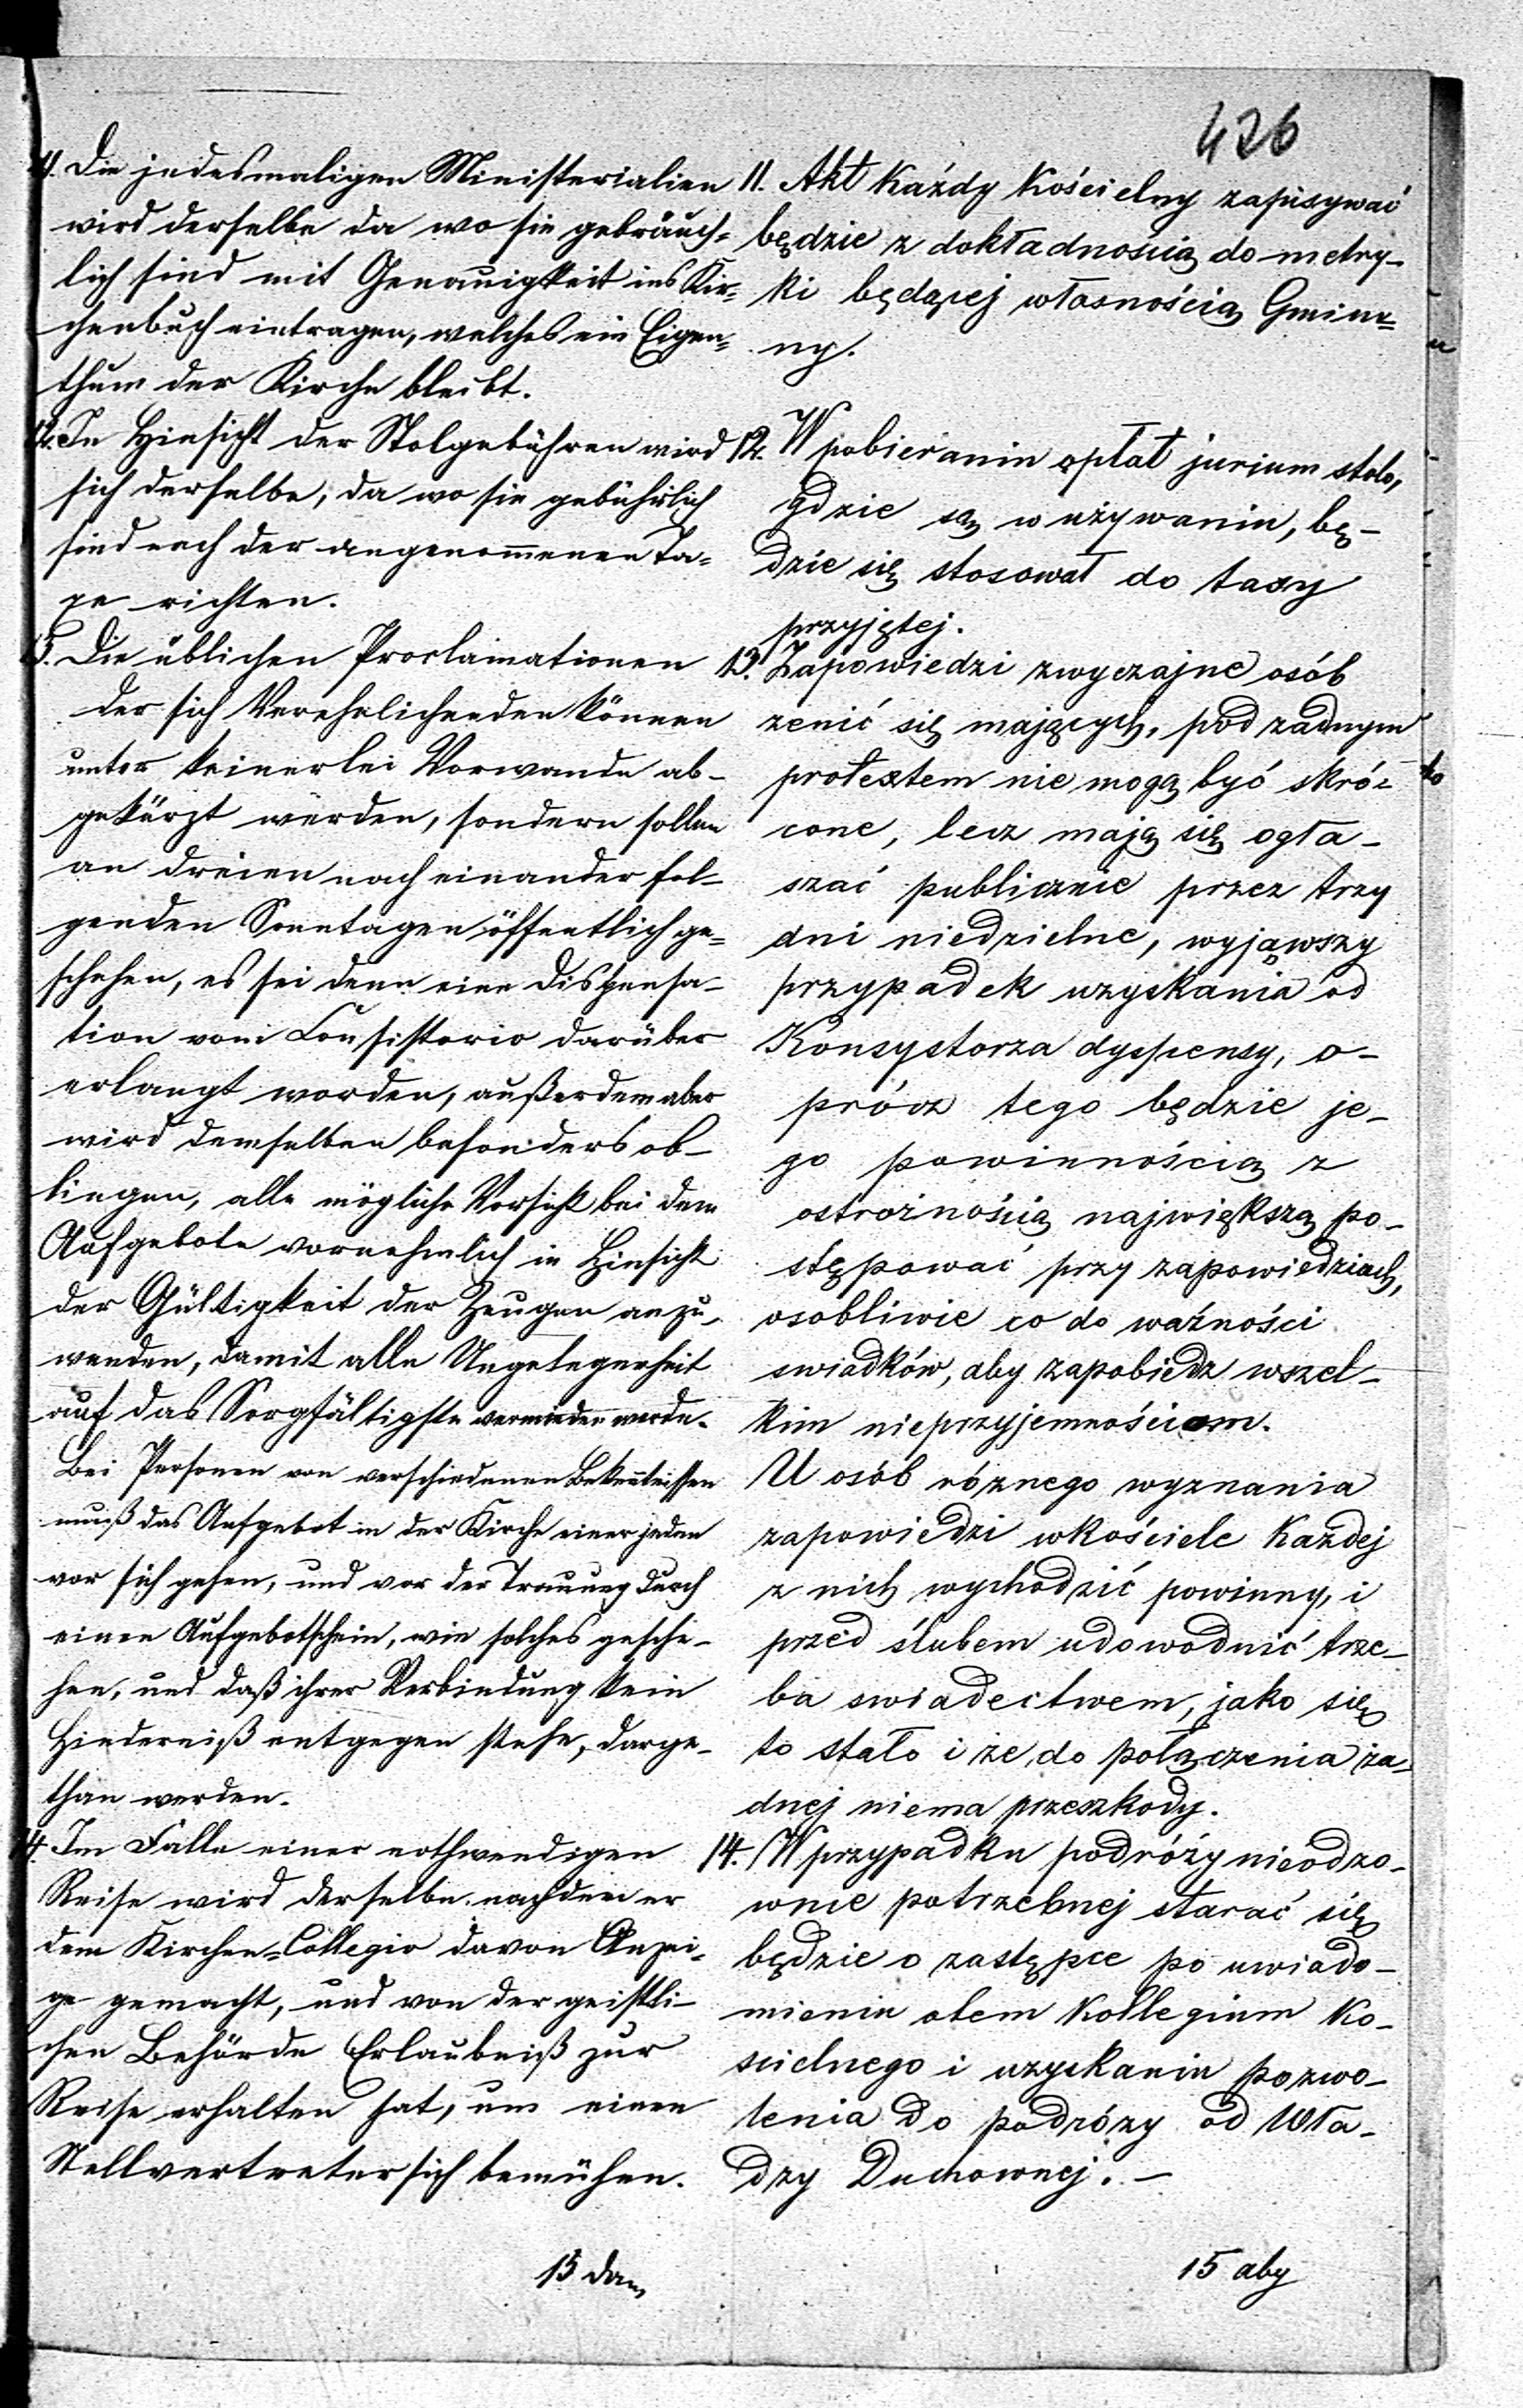 426
11. Die jedesmaligen Ministerialien
wird derselbe da wo sie gebräuch=
lich sind mit Genauigkeit ins Kir=
chenbuch eintragen, welches ein Eigen=
thum der Kirche bleibt.
12. In Hinsicht der Stolgebühren wird
sich derselbe, da wo sie gebührlich
sind nach der angenommenen Ta=
xe richten.
13. Die üblichen Proclamationen
der sich Verehelichenden können
unter keinerlei Vorwande ab-
gekürzt werden, sondern sollen
an dreien nach einander fol-
genden Sonntagen öffentlich ge=
schehen, es sei denn eine Dispensa-
tion vom Consistorio darüber
erlangt worden, außerdem aber
wird demselben besonders ob-
liegen, alle mögliche Vorsicht bei dem
Aufgebote vornehmlich in Hinsicht
der Gültigkeit der Zeugen anzu-
wenden, damit alle Ungelegenheit
auf das Sorgfältigste vermieden werde.
Bei Personen von verschiedenen Bekenntnissen
muß das Aufgebot in der Kirche einer jeden
vor sich gehen, und vor der Trauung durch
einen Aufgebotschein, wie solches gesche-
hen, und daß ihrer Verbindung kein
Hinderniß entgegen stehe, darge-
than werden.
14. Im Falle einer nothwendigen
Reise wird derselbe nachdem er
dem Kirchen-Collegio davon Anzei-
ge gemacht, und von der geistli-
chen Behörde Erlaubniß zur
Reise erhalten hat, um einen
Stellvertreter sich bemühen.
15 dem
11. Akt każdy Kościelny zapisywać
będzie z dokładnością do metry-
ki będącej własnością Gmin=
ny.
12. W pobieraniu opłat jurium stolo,
gdzie są w używaniu, bę-
dzie się stosował do taxy
przyjętej.
13. Zapowiedzi zwyczajne osób
zenić się mających, pod zadnym
protextem nie mogą być skró=
cone, lecz mają się ogła-
szać publicznie przez trzy
dni niedzielne, wyjąwszy
przypadek uzyskania od
Konsystorza dyspensy, o-
prócz tego będzie je-
go powinnością z
ostrożnością największą po-
stępować przy zapowiedziach,
osobliwie co do ważności
swiadków, aby zapobiedz wszel-
kim nieprzyjemnościom.
U osób róznego wyznania
zapowiedzi w kościele Każdej
z nich wychodzić powinny, i
przed ślubem udowodnić trze-
ba swiadectwem, jako się
to stało i ze do połączenia ża-
dnej niema przeszkody.
14. W przypadku podróży nieodzo-
wnie potrzebnej starać się
będzie o zastępce po uwiado-
mieniu otem Kollegium Ko-
scielnego i uzyskaniu pozwo-
lenia do podrózy od Wła-
dzy Duchownej. -
15 aby